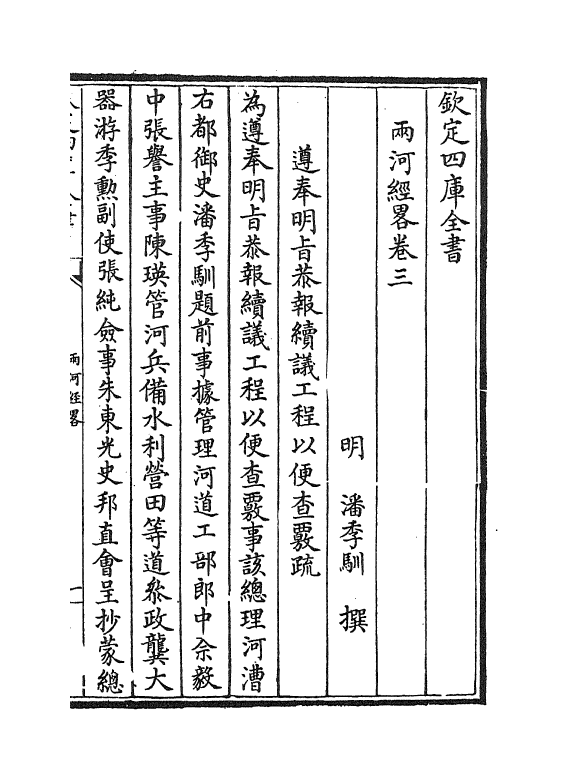 欽定四庫全書
兩河經畧卷三
明 潘季馴 撰
遵奉明旨恭報續議工程以便查覈疏
為遵奉明旨恭報續議工程以便查覈事該總理河漕
右都御史潘季馴題前事據管理河道工部郎中佘毅
中張譽主事陳瑛管河兵備水利營田等道叅政龔大
器游季勲副使張純僉事朱東光史邦直會呈抄蒙總
兩河經畧
一